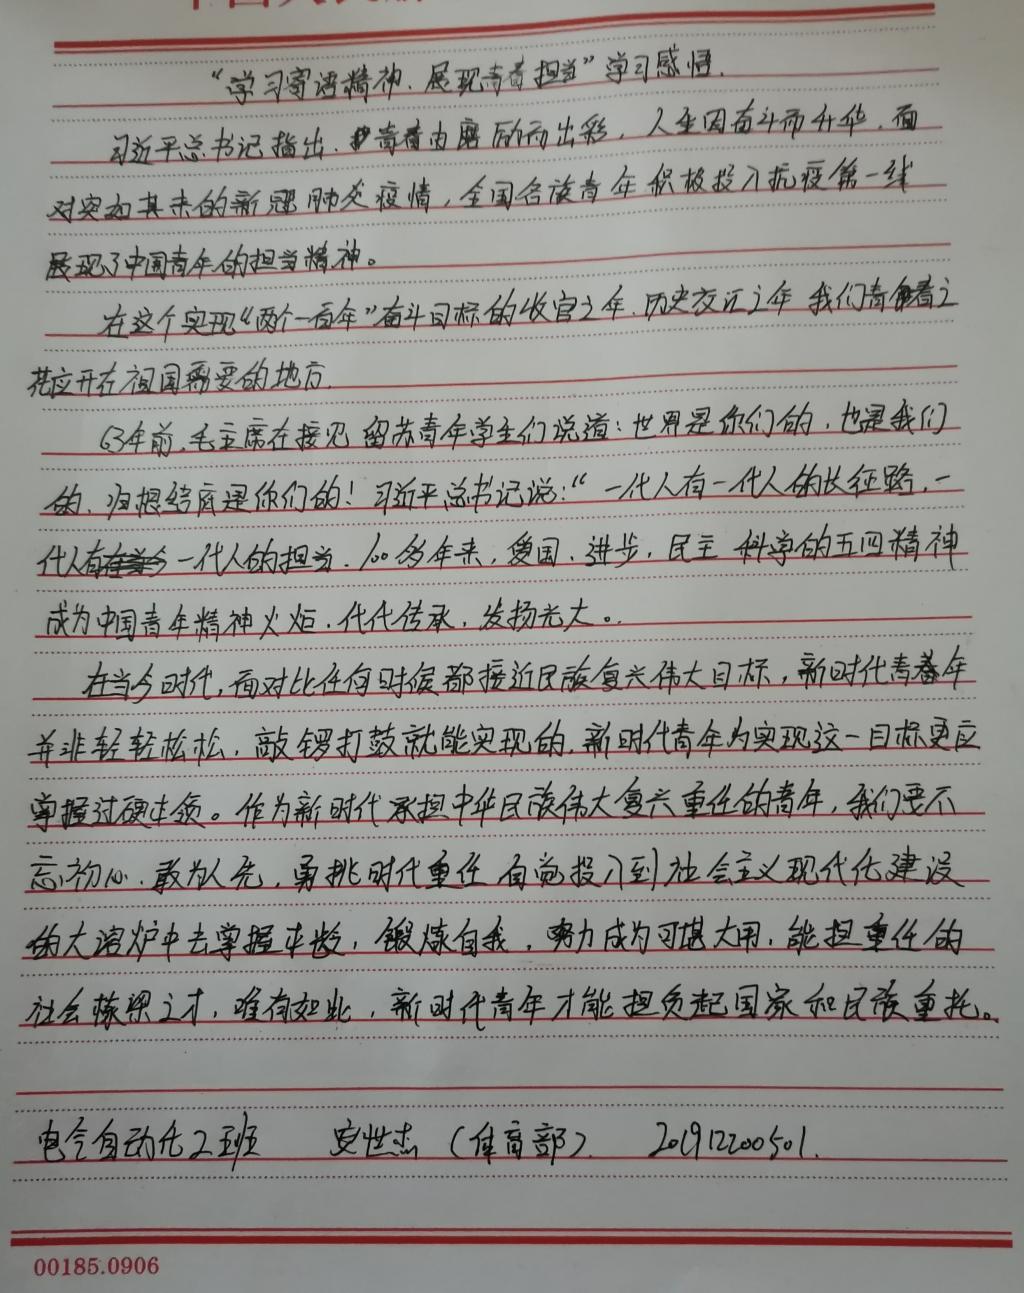 “学习寄语精神、展现青春担当”学习感悟.
习近平总书记指出.青春由磨励而出彩，人生因奋斗而升华.面
对突如其来的新冠肺炎疫情，全国各族青年积极投入抗疫第一线
展现了中国青年的担当精神。
在这个实现“两个一百年”奋斗目标的收官之年.历史交汇之年 我们青春之
花应开在祖国需要的地方.
63年前.毛主席在接见留苏青年学生们说道：世界是你们的，也是我们
的、归根结底是你们的！习近平总书记说：“一代人有一代人的长征路，一
代人有一代人的担当.100多年来，爱国、进步，民主 科学的五四精神
成为中国青年精神火炬.代代传承，发扬光大。
在当今时代，面对比任何时候都接近民族复兴伟大目标，新时代青年
并非轻轻松松、敲锣打鼓就能实现的.新时代青年为实现这一目标更应
掌握过硬本领。作为新时代承担中华民族伟大复兴重任的青年，我们要不
忘初心.敢为人先，勇挑时代重任 自觉投入到社会主义现代化建设
的大溶炉中去掌握本，锻炼自我，努力成为可堪大用、能担重任的
社会栋梁之才，唯有如此，新时代青年才能担负起国家和民族重托。
电气自动化2班 安世杰（体育部） 201912200501.
00185.0906